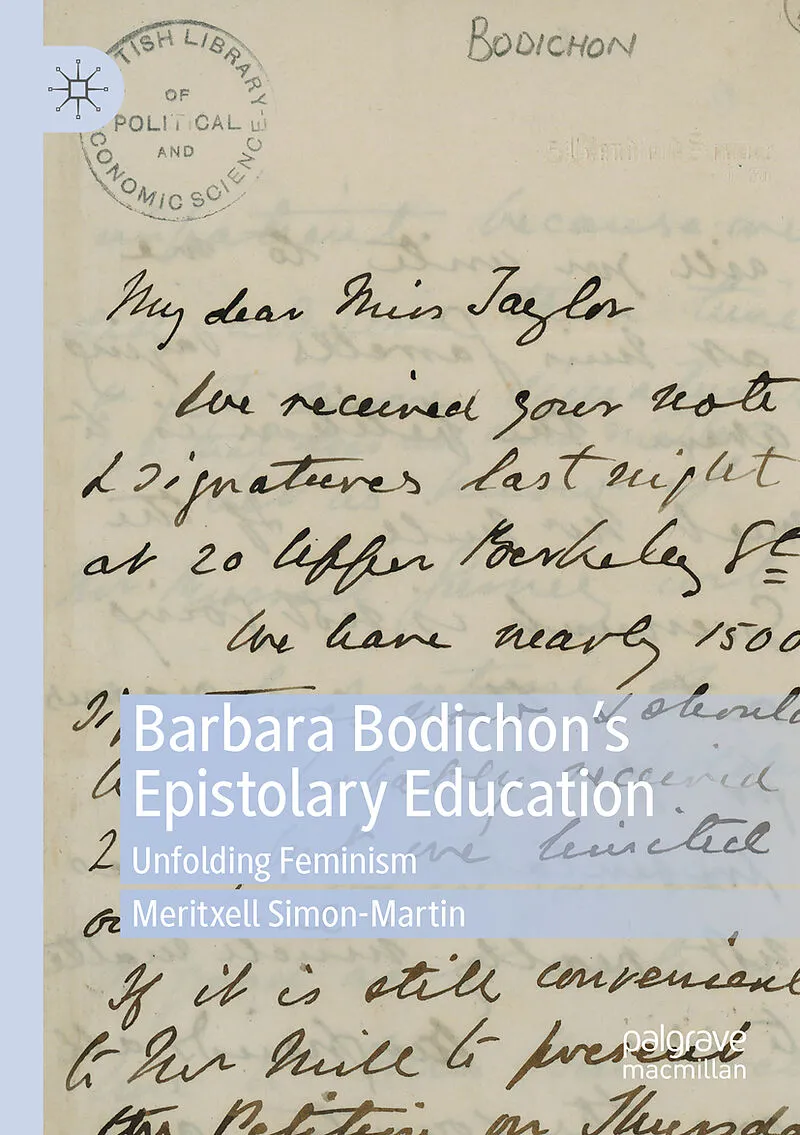 BODICHON
TISH LIBRARY
OF
POLITICAL
AND
CONOMIC SCIENCE-
My dear Miss Taylor
We received your note
& signatures last night
at 20 Upper Berkeley St
We have nearly 1500
now & should
received
Barbara Bodichon's
Epistolary Education
2
limited
Unfolding Feminism
Meritxell Simon-Martin
If it is still convenient
to Mr Mill to present
the Petition on Thursda
palgrave
macmillan